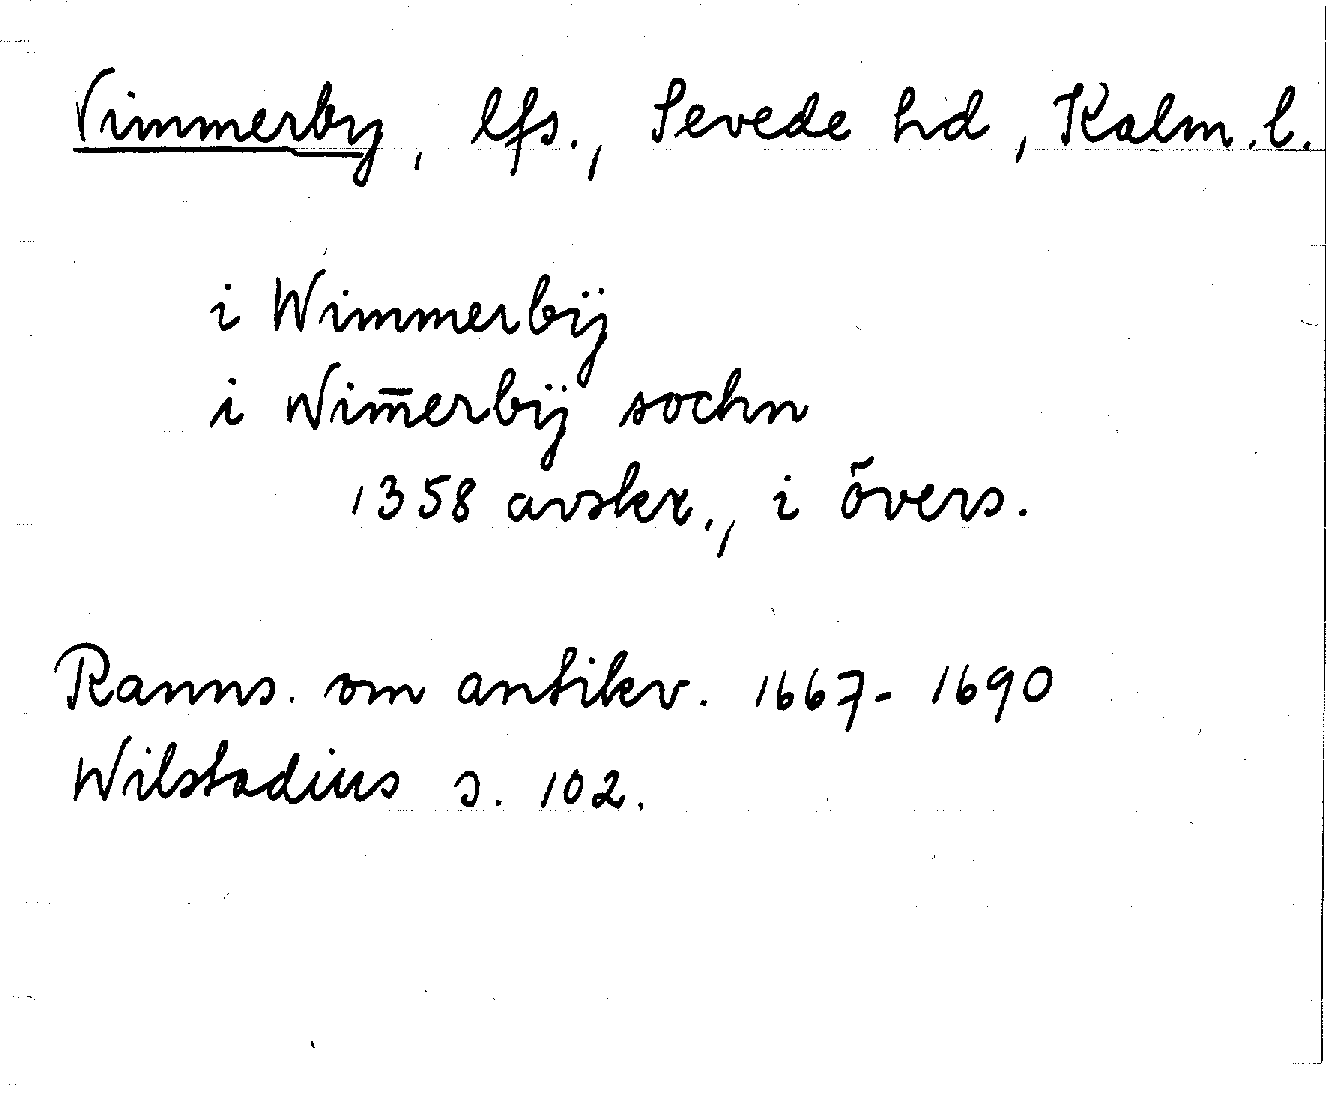 Vimmerby, lfs., Sevede hd, Kalm.l.
i Wimmerbÿ
i Wim̄erbÿ sochn
1358 avskr., i övers.
Ranns. om antikv. 1667-1690
Wilstadius s. 102.